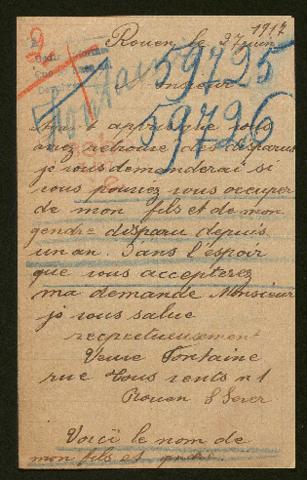 1917
Rouen le 27 juin
59725
Monsieur
Fontaine
59726
appris que vous
avez retrouvé des disparus
je vous demanderai si
vous pouvez vous occuper
de mon fils et de mon
gendre disparu depuis
un an. Dans l'espoir
que vous accepterez
ma demande Monsieur
je vous salue
respectueusement
Veuve Fontaine
rue tous vents n 1
Rouen S Sever
Voici le nom de
mon fils et gendre.